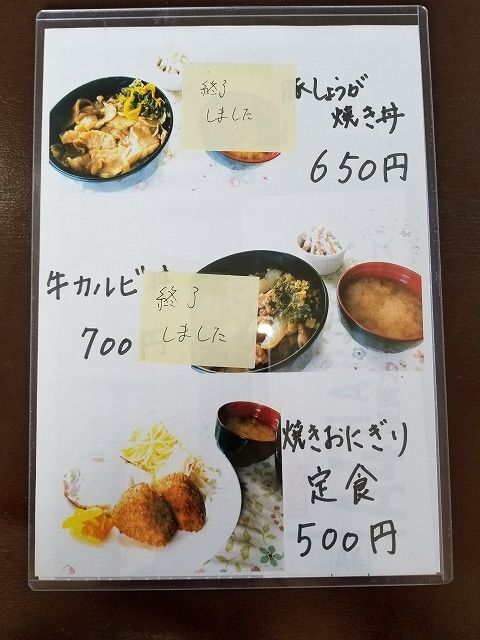 終了
しました
豚しょうが
焼き丼
650円
牛カルビ
700円
終了
しました
焼きおにぎり
定食
500円